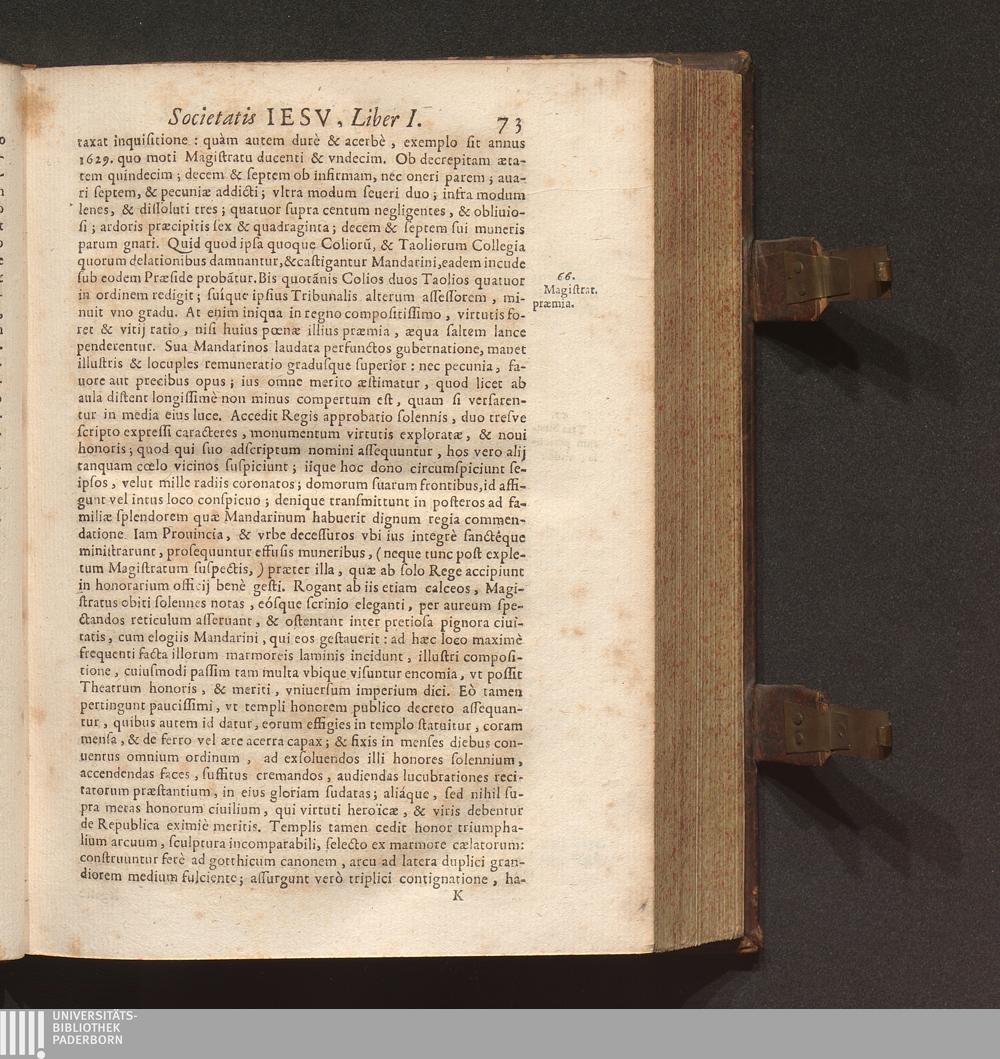 Societatis IESV, Liber I. 73
taxat inquisitione : quàm autem durè & acerbè , exemplo sit annus
1629. quo moti Magistratu ducenti & vndecim. Ob decrepitam æta-
tem quindecim ; decem & septem ob infirmam, nec oneri parem ; aua-
ri septem, & pecuniæ addicti ; vltra modum seueri duo ; infra modum
lenes, & dissoluti tres ; quatuor supra centum negligentes , & obliuio-
si ; ardoris præcipitis sex & quadraginta ; decem & septem sui muneris
parum gnari. Quid quod ipsa quoque Coliorũ, & Taoliorum Collegia
quorum delationibus damnantur,&castigantur Mandarini,eadem incude
sub eodem Præside probãtur.Bis quotãnis Colios duos Taolios quatuor
in ordinem redigit ; suíque ipsius Tribunalis alterum assessorem , mi-
nuit vno gradu. At enim iniqua in regno compositissimo , virtutis fo-
ret & vitij ratio , nisi huius pœnæ illius præmia , æqua saltem lance
penderentur. Sua Mandarinos laudata perfunctos gubernatione, manet
illustris & locuples remuneratio gradusque superior : nec pecunia, fa-
uore aut precibus opus ; ius omne merito æstimatur , quod licet ab
aula distent longissimè non minus compertum est , quam si versaren-
tur in media eius luce. Accedit Regis approbatio solennis , duo tresve
scripto expressi caracteres , monumentum virtutis exploratæ, & noui
honoris ; quod qui suo adscriptum nomini assequuntur , hos vero alij
tanquam cœlo vicinos suspiciunt ; iíque hoc dono circumspiciunt se-
ipsos , velut mille radiis coronatos ; domorum suarum frontibus,id affi-
gunt vel intus loco conspicuo ; denique transmittunt in posteros ad fa-
miliæ splendorem quæ Mandarinum habuerit dignum regia commen-
datione. Iam Prouincia, & vrbe decessuros vbi ius integrè sanctéque
ministrarunt , prosequuntur effusis muneribus , ( neque tunc post exple-
tum Magistratum suspectis, ) præter illa , quæ ab solo Rege accipiunt
in honorarium officij benè gesti. Rogant ab iis etiam calceos , Magi-
stratus obiti solennes notas , eósque scrinio eleganti , per aureum spe-
ctandos reticulum asseruant , & ostentant inter pretiosa pignora ciui-
tatis , cum elogiis Mandarini , qui eos gestauerit : ad hæc loco maximè
frequenti facta illorum marmoreis laminis incidunt , illustri composi-
tione , cuiusmodi passim tam multa vbique visuntur encomia, vt possit
Theatrum honoris , & meriti , vniuersum imperium dici. Eò tamen
pertingunt paucissimi , vt templi honorem publico decreto assequan-
tur , quibus autem id datur, eorum effigies in templo statuitur , coram
mensa , & de ferro vel ære acerra capax ; & fixis in menses diebus con-
uentus omnium ordinum , ad exsoluendos illi honores solennium ,
accendendas faces , suffitus cremandos , audiendas lucubrationes reci-
tatorum præstantium , in eius gloriam sudatas ; aliáque , sed nihil su-
pra metas honorum ciuilium , qui virtuti heroïcæ , & viris debentur
de Republica eximiè meritis. Templis tamen cedit honor triumpha-
lium arcuum , sculptura incomparabili, selecto ex marmore cælatorum:
construuntur ferè ad gotthicum canonem , arcu ad latera duplici gran-
diorem medium fulciente ; assurgunt verò triplici contignatione , ha-
K
66.
Magistrat.
præmia.
UNIVERSITÄTS-
BIBLIOTHEK
PADERBORN